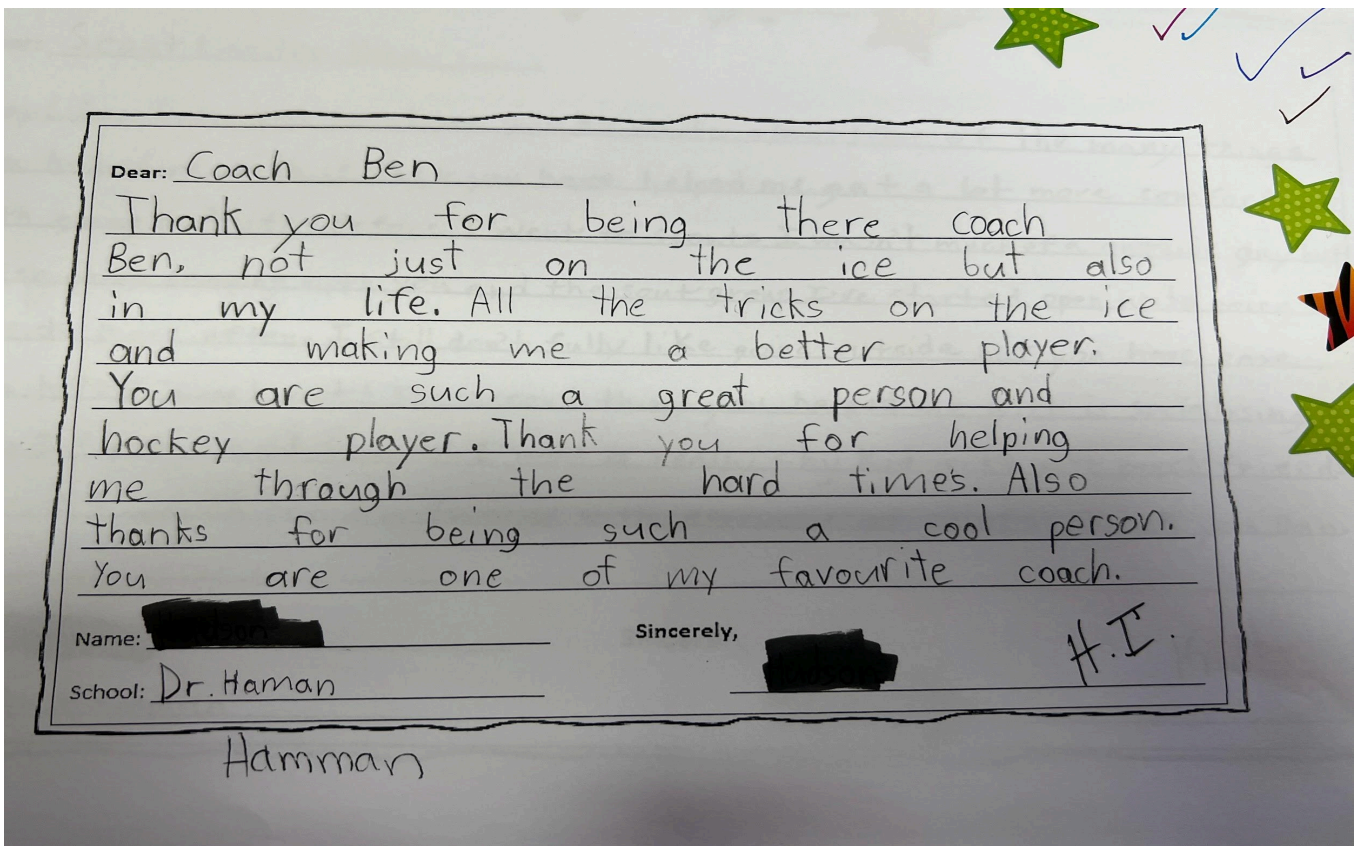 Dear: Coach Ben
Thank you for being there coach
Ben, not just on the ice but also
in my life. All the tricks on the ice
and making me a better player.
You are such a great person and
hockey player. Thank you for helping
me through the hard times. Also
thanks for being such a cool person.
You are one of my favourite coach.
Name:
Sincerely,
H.I.
School: Dr. Haman
Hamman